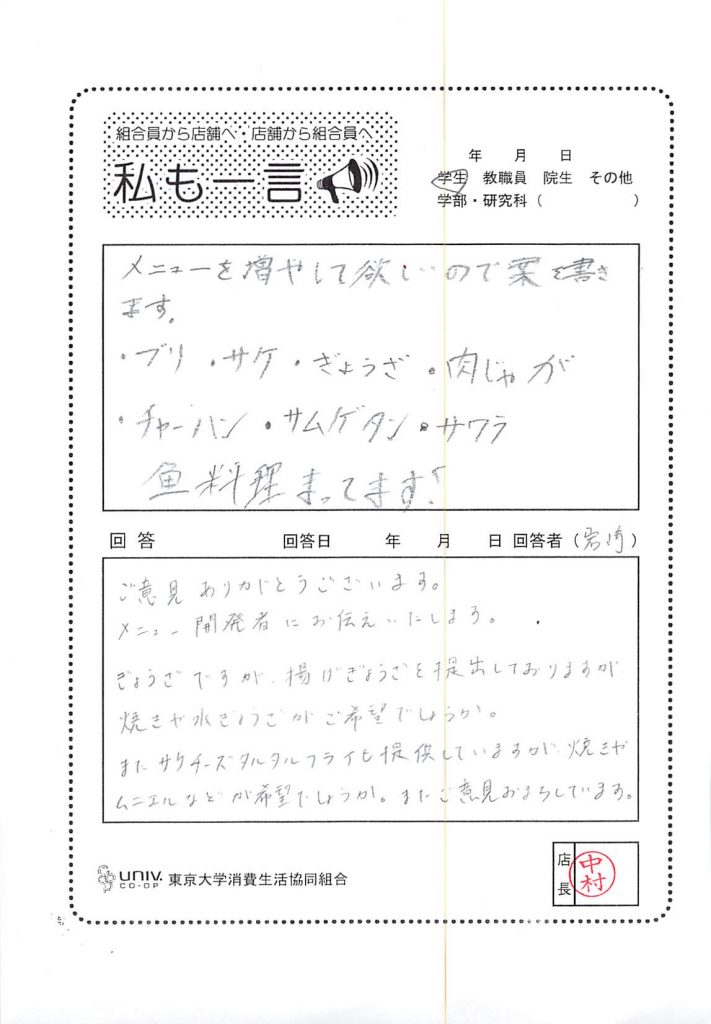 組合員から店舗へ・店舗から組合員へ
私も一言
年 月 日
学生 教職員 院生 その他
学部・研究科( )
メニューを増やして欲しいので案を書き
ます。
・ブリ ・サケ ・ぎょうざ ・肉じゃが
・チャーハン ・サムゲタン ・サワラ
魚料理まってます!
回答 回答日 年 月 日 回答者(岩崎)
ご意見ありがとうございます。
メニュー開発者にお伝えいたします。
ぎょうざですが、揚げぎょうざを提出しておりますが
焼きや水ぎょうざがご希望でしょうか。
またサケチーズタルタルフライも提供していますが、焼きや
ムニエルなどが希望でしょうか。またご意見おまちしています。
UNIV. CO-OP 東京大学消費生活協同組合
店長 中村